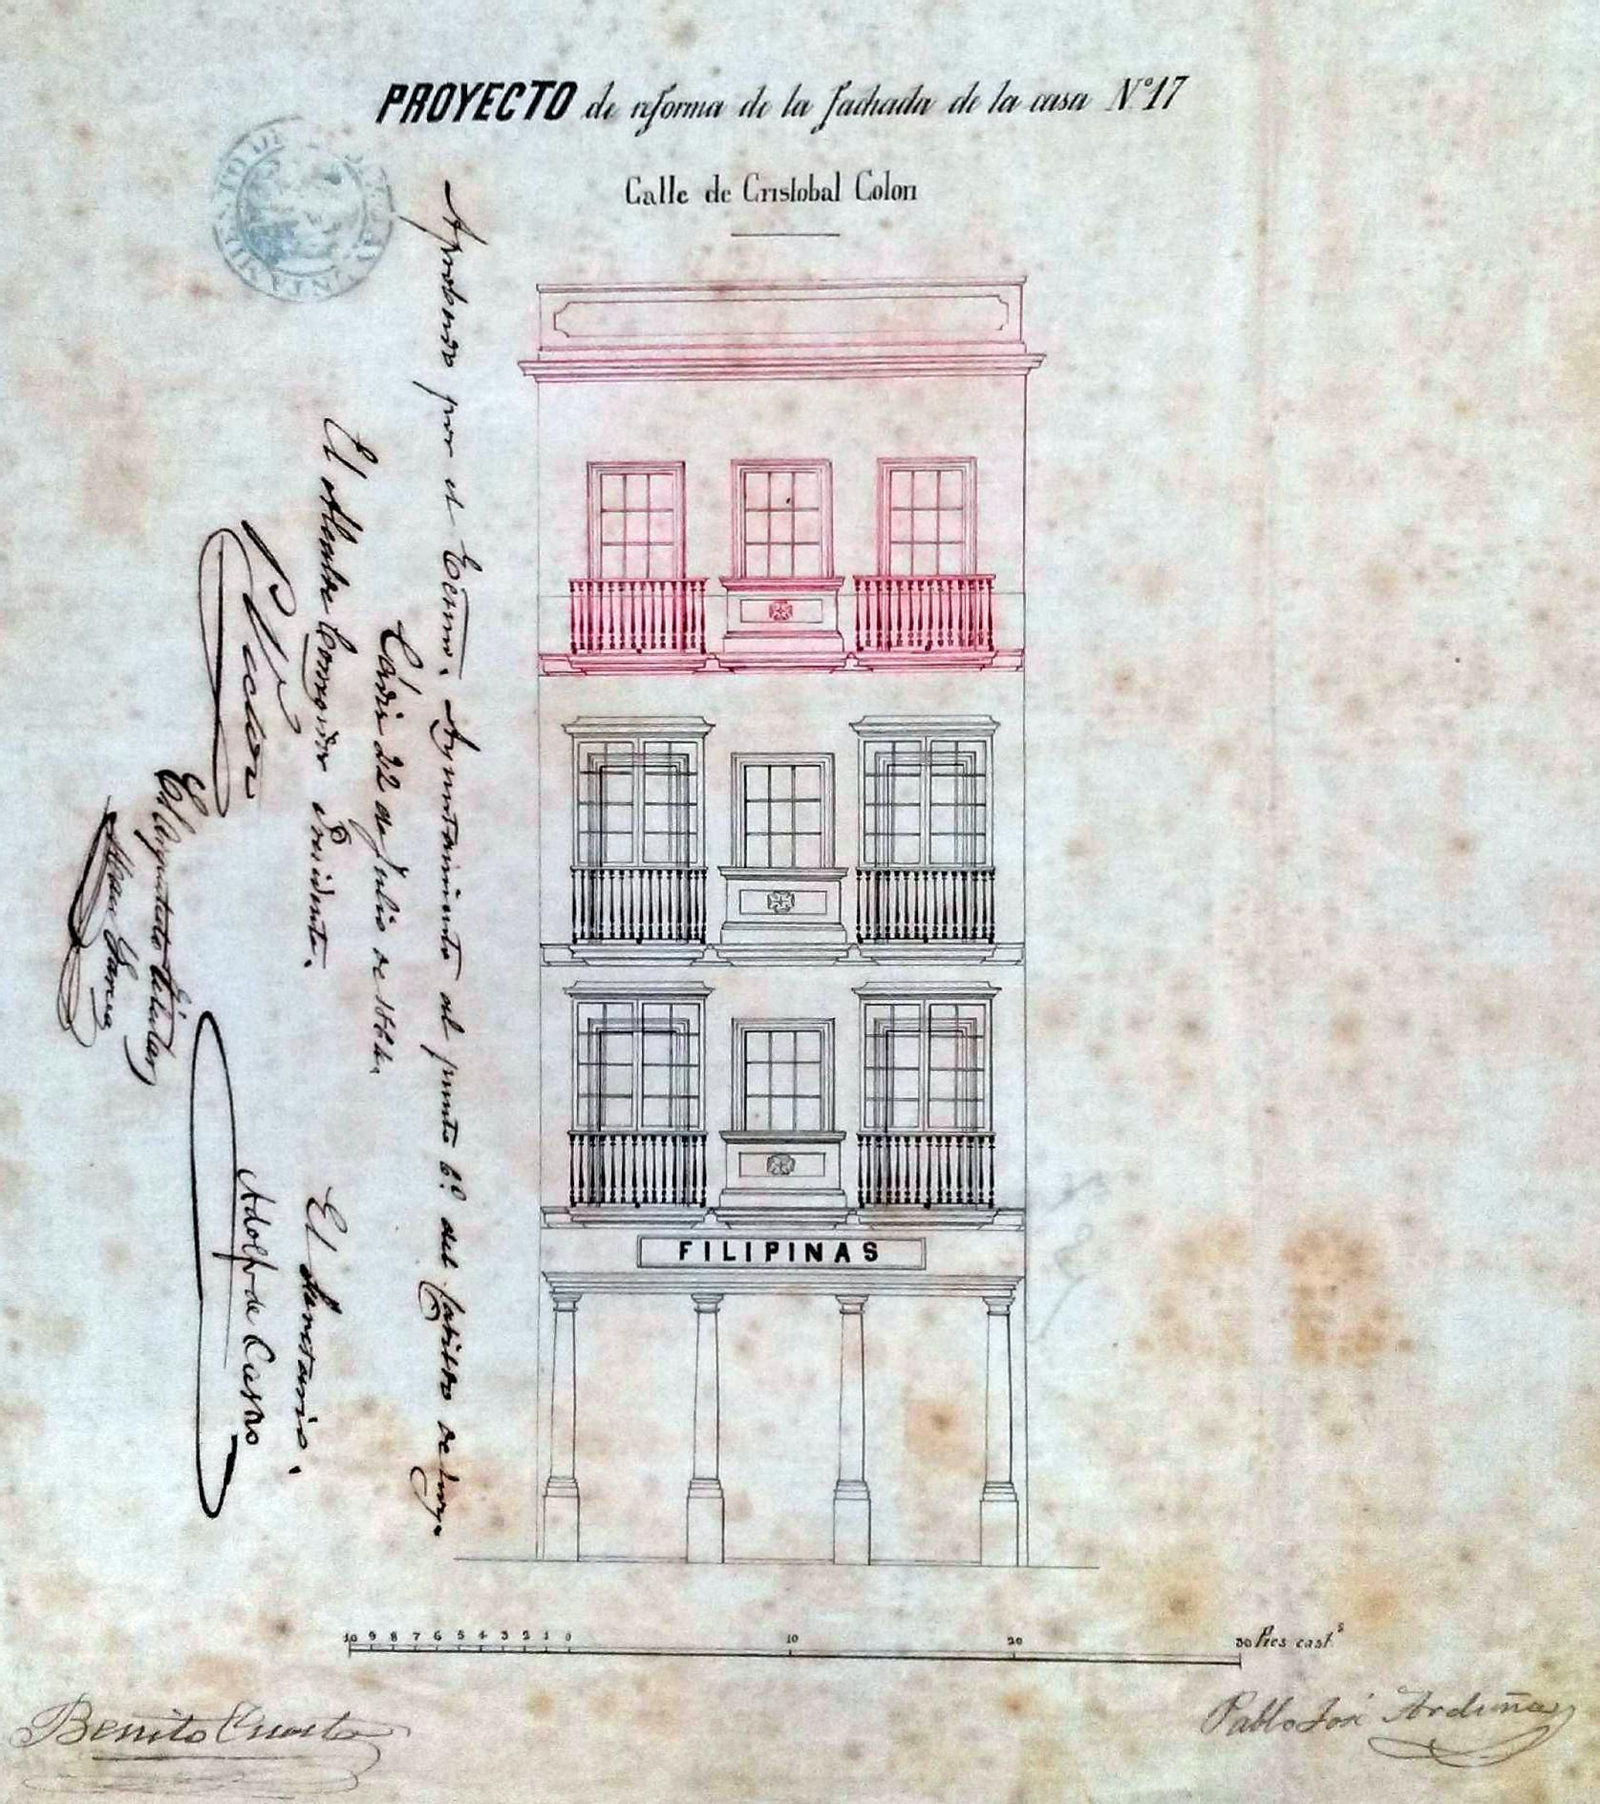 PROYECTO de reforma de la fachada de la casa Nº 17
Calle de Cristobal Colon
Aprobado por el Excmo. Ayuntamiento al punto 6º del Cabildo de hoy.
Cádiz 22 de Julio de 1864
El Alcalde Corregidor Presidente.
Victor
El Secretario.
Adolfo de Castro
El Arquitecto titular
García
FILIPINAS
10 9 8 7 6 5 4 3 2 1 0 10 20 30 Pies cast.s
Benito Cuesta
Pablo José Arduña